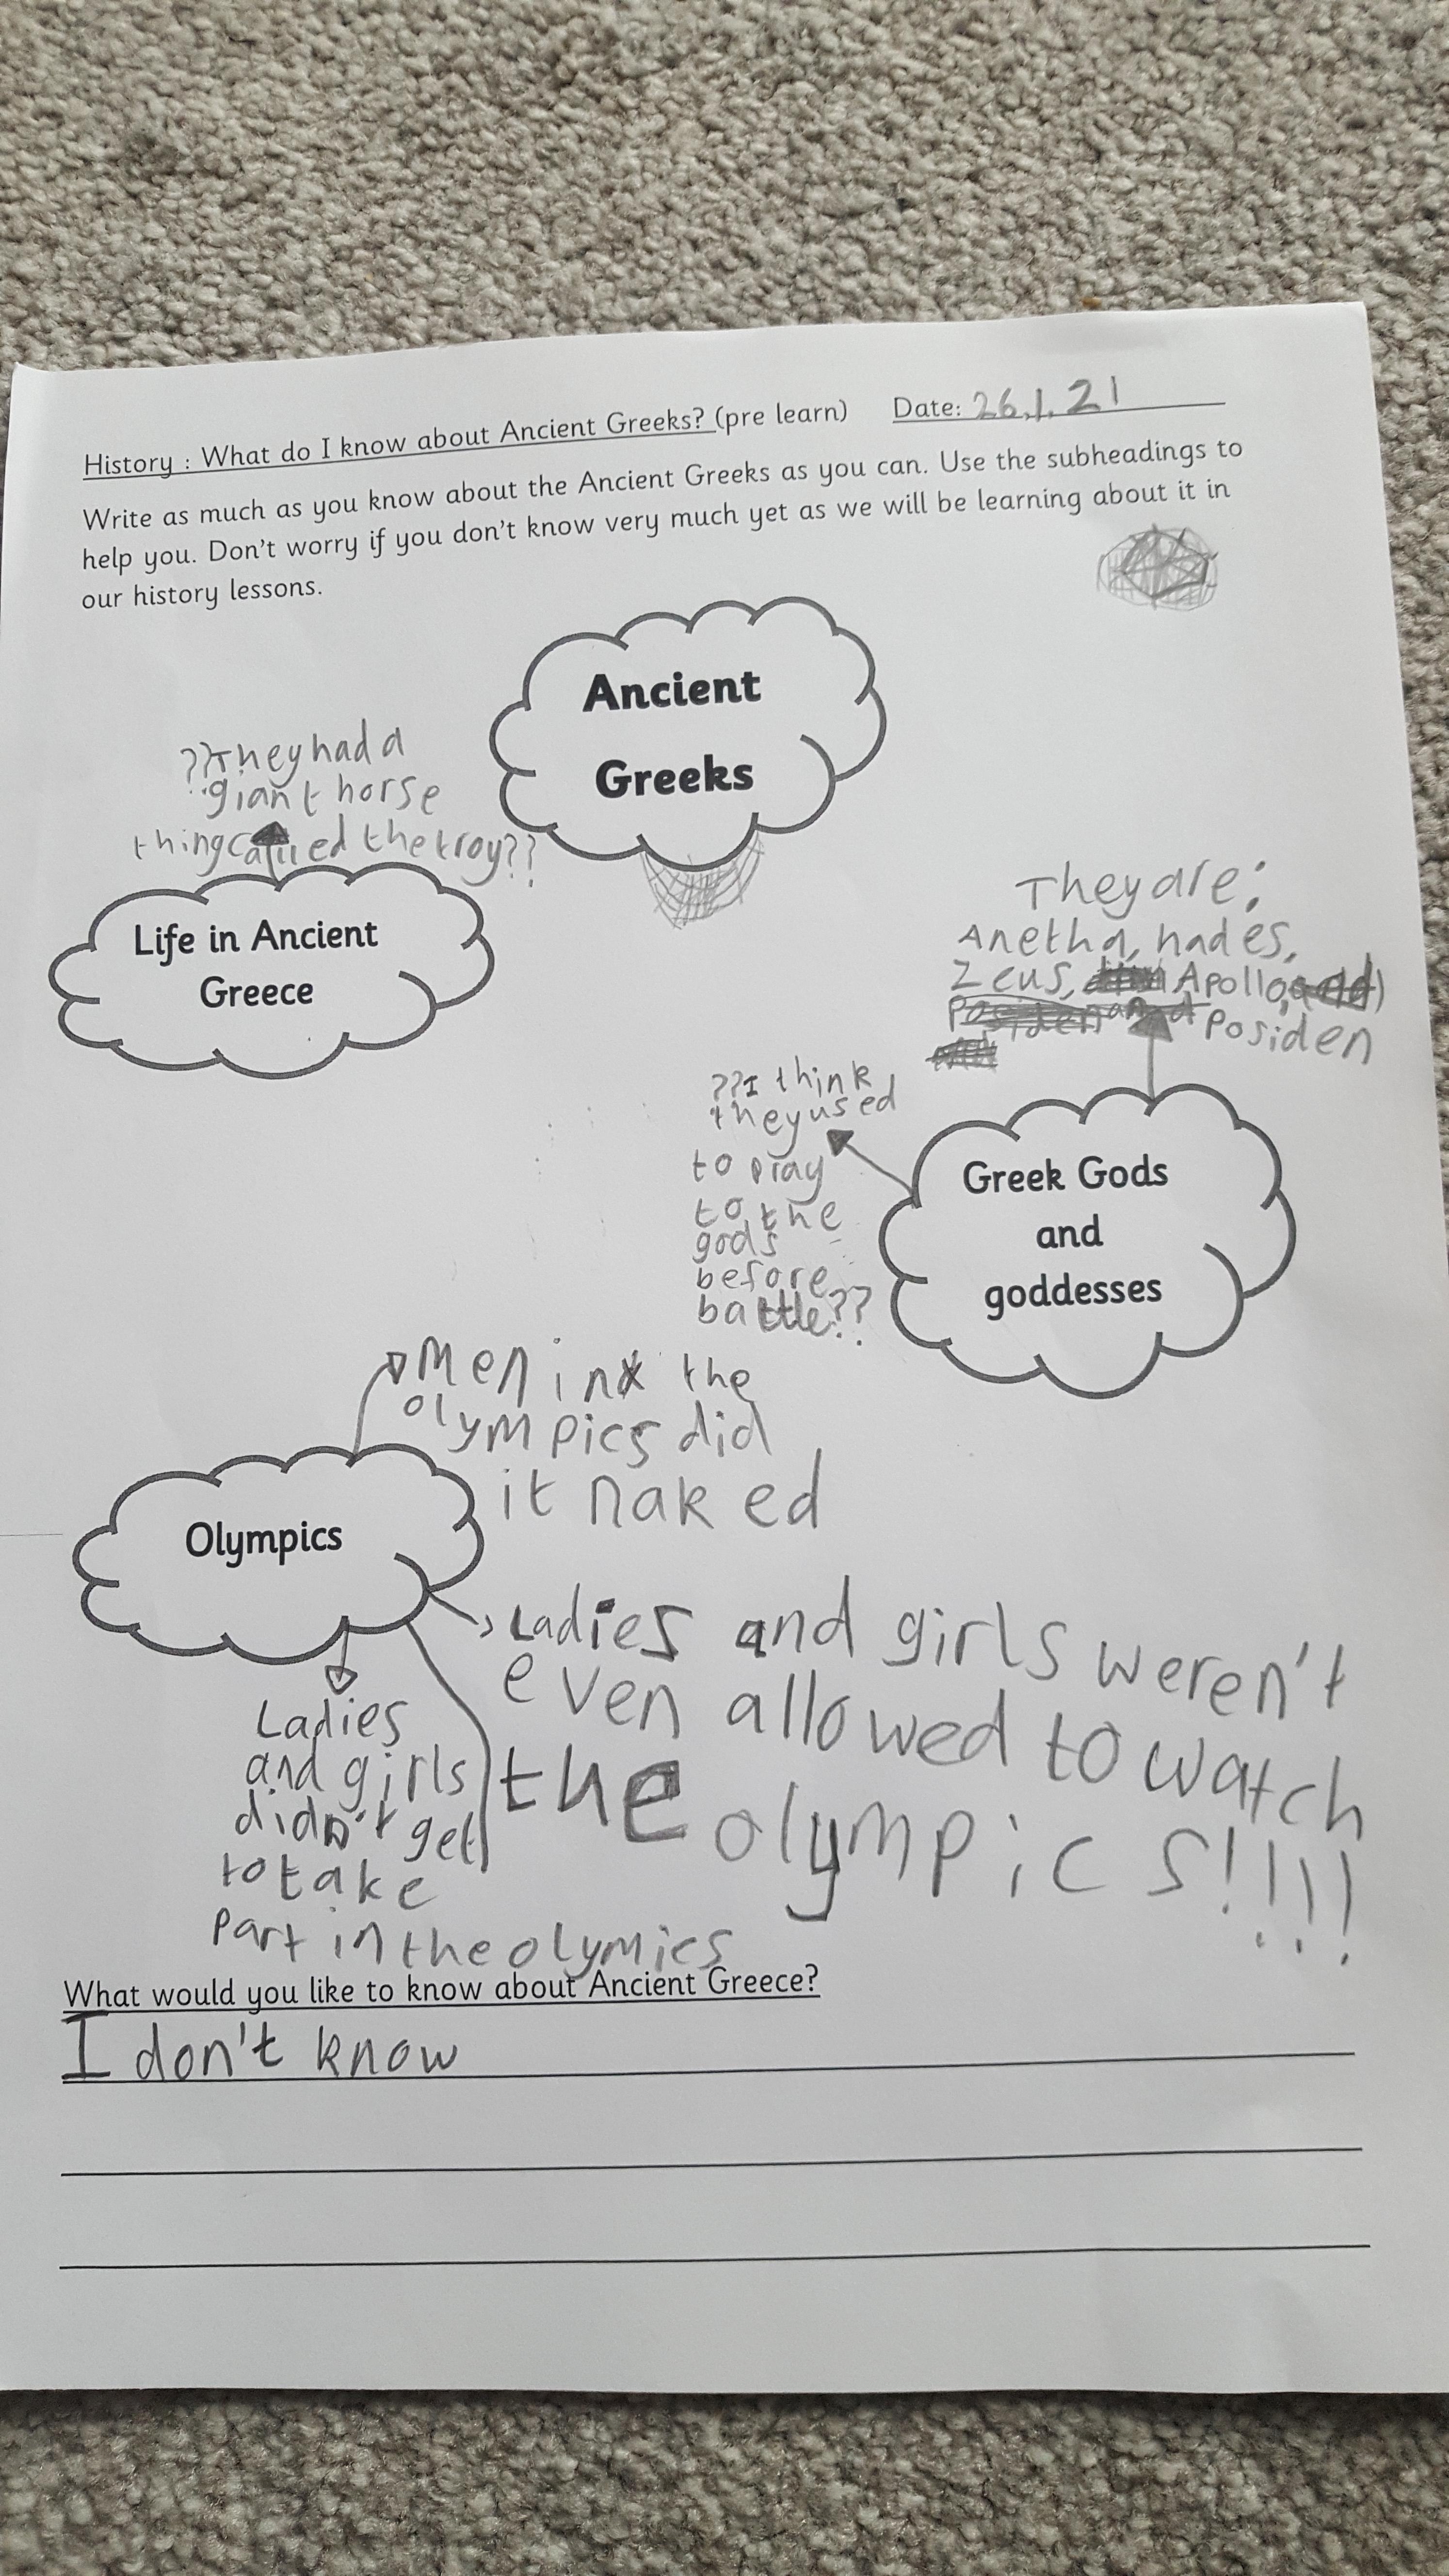 History : What do I know about Ancient Greeks? (pre learn) Date: 26.1.21
Write as much as you know about the Ancient Greeks as you can. Use the subheadings to
help you. Don't worry if you don't know very much yet as we will be learning about it in
our history lessons.
Ancient
Greeks
??They had a
giant horse
thing called the troy??
Life in Ancient
Greece
They are:
Anetha, hades,
Zeus, Apollo,
Posiden and Posiden
??I think
they used
to pray
to the
gods
before
battle??
Greek Gods
and
goddesses
Men in the
olympics did
it naked
Olympics
Ladies and girls weren't
even allowed to watch
the olympics!!!!
Ladies
and girls
didn't get
to take
part in the olymics
What would you like to know about Ancient Greece?
I don't know